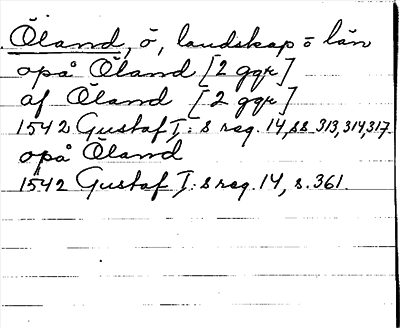 Öland, ö, landskap o län
opå Öland [2 ggr]
af Öland [2 ggr]
1542 Gustaf I:s reg. 14, ss 313, 314, 317
opå Öland
1542 Gustaf I:s reg. 14, s. 361.